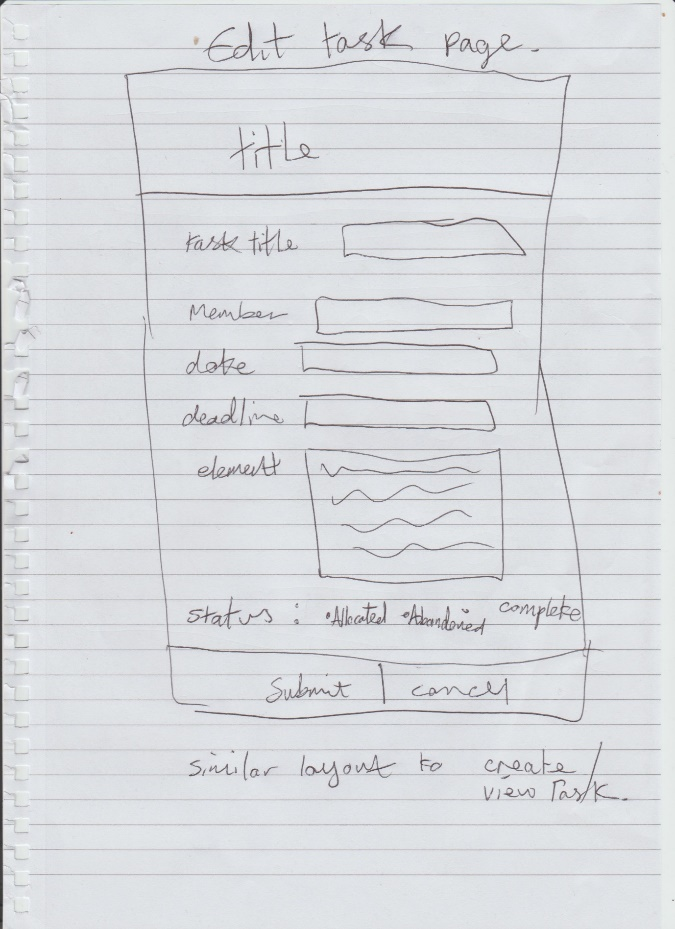 Edit task page.
title
task title
Member
date
deadline
element
status : •Allocated •Abandoned •complete
Submit | cancel
similar layout to create /
view Task.